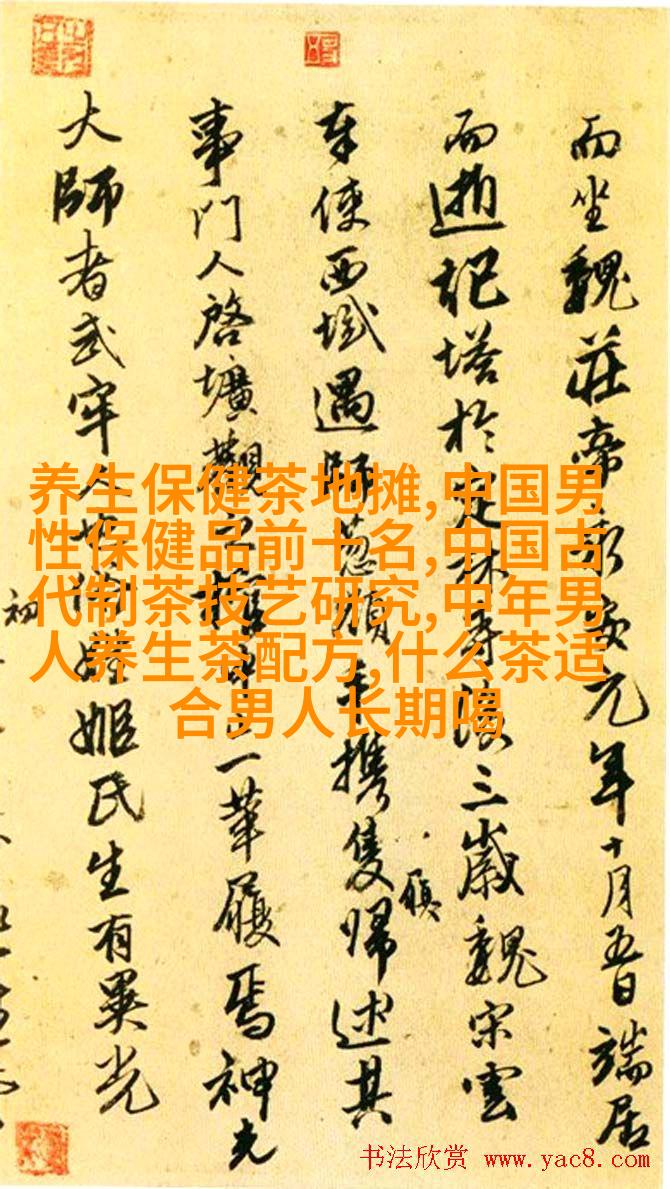 而坐魏莊帝永安元年十月五日端居
而逝記塔於定林寺後三歲魏宋雲
奉使西域遇師葱嶺手携隻歸述其
履
事門人啓壙觀之一革履焉神光
大師者武牢人也俗姓姬氏生有異光
初
养生保健茶地摊,中国男
性保健品前十名,中国古
代制茶技艺研究,中年男
人养生茶配方,什么茶适
合男人长期喝
书法欣赏 www.yac8.com